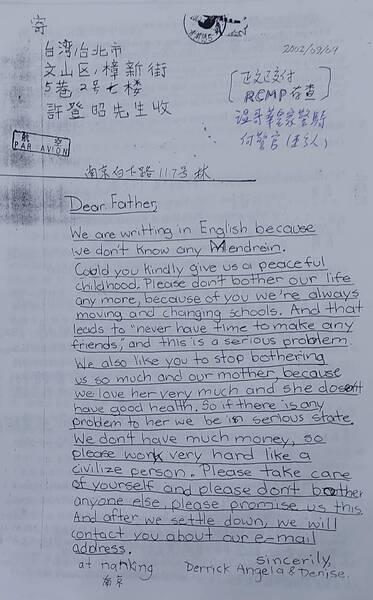 寄
台湾台北市
文山区，樟新街
5巷2号七楼
許登昭先生收
2002/09/09
正文已交付
RCMP存查
何警官
航空
PAR AVION
南京白下路117号林
Dear Father,
We are writting in English because
we don't know any Mendrein.
Could you kindly give us a peaceful
childhood. Please don't bother our life
any more, because of you we're always
moving and changing schools. And that
leads to "never have time to make any
friends", and this is a serious problem.
We also like you to stop bothering
us so much and our mother, because
we love her very much and she doesn't
have good health. So if there is any
problem to her we be in serious state.
We don't have much money, so
please work very hard like a
civilize person. Please take care
of yourself and please don't bother
anyone else, please promise us this.
And after we settle down, we will
contact you about our e-mail
address.
sincerily,
at nanking Derrick Angela & Denise.
南京